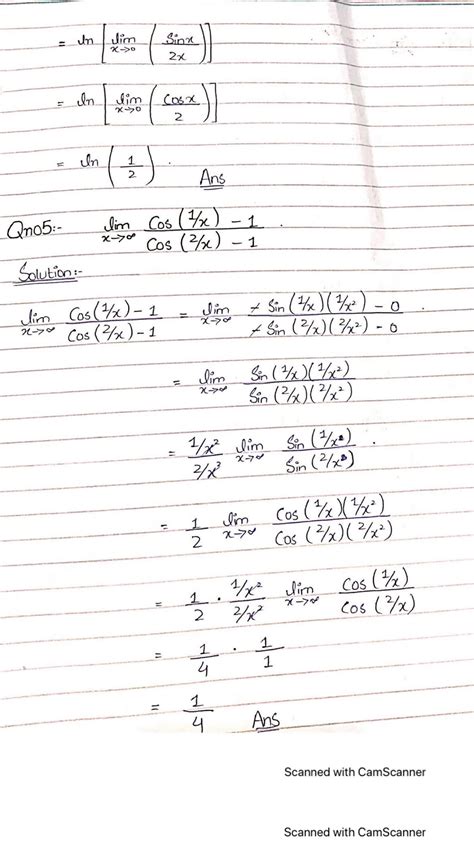 = ln [ lim x→0 ( Sinx / 2x ) ]
= ln [ lim x→0 ( Cosx / 2 ) ]
= ln ( 1/2 ) .
Ans
Qno5:- lim x→∞ Cos (1/x) - 1 / Cos (2/x) - 1 .
Solution:-
lim x→∞ Cos(1/x) - 1 / Cos(2/x) - 1 = lim x→∞ - Sin (1/x)(1/x²) - 0 / - Sin (2/x)(2/x²) - 0 .
= lim x→∞ Sin (1/x)(1/x²) / Sin (2/x)(2/x²)
= 1/x² / 2/x³ lim x→∞ Sin (1/x) / Sin (2/x) .
= 1/2 lim x→∞ Cos (1/x)(1/x²) / Cos (2/x)(2/x²)
= 1/2 · 1/x² / 2/x² lim x→∞ Cos (1/x) / Cos (2/x)
= 1/4 · 1/1
= 1/4 Ans
Scanned with CamScanner
Scanned with CamScanner